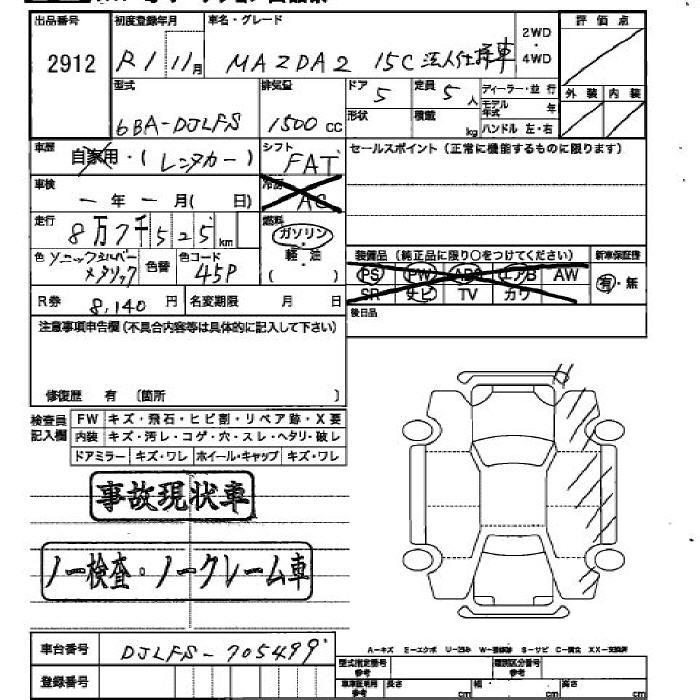 出品番号 初度登録年月 車名・グレード 2WD ・ 4WD 評価点
2912 R1 11月 MAZDA2 15C 法人仕様車
型式 排気量 ドア 定員 ディーラー・並行 外装 内装
6BA-DJLFS 1500 CC 5 5人 モデル年式 年
形状 積載 kg ハンドル 左・右
車歴 自家用・(レンタカー) シフト FAT セールスポイント(正常に機能するものに限ります)
車検 ー年ー月( 日) 冷房 AC
走行 8万7千525km 燃料 ガソリン・軽・油 ( )
色 ソニックシルバーメタリック 色替 色コード 45P
装備品(純正品に限り○をつけてください) 新車保証書
PS PW ABS エアB AW 有・無
SR ナビ TV カワ
R券 8,140円 名変期限 月 日
後日品
注意事項申告欄(不具合内容等は具体的に記入して下さい)
修復歴 有 〔箇所 〕
検査員記入欄 FW キズ・飛石・ヒビ割・リペア跡・X要
内装 キズ・汚レ・コゲ・穴・スレ・ヘタリ・破レ
ドアミラー キズ・ワレ ホイール・キャップ キズ・ワレ
事故現状車
ノー検査・ノークレーム車
A-キズ E-エクボ U-凹み W-補修跡 S-サビ C-腐食 XX-交換済
車台番号 DJLFS-705499
型式指定番号 参考 類別区分番号 参考
登録番号 車庫証明用 参考 長さ cm 幅 cm 高さ cm